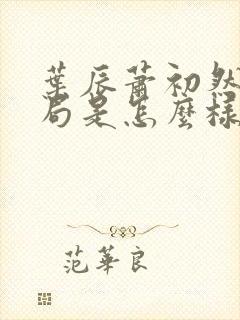 葉辰蕭初然
局是怎麼樣
范華良